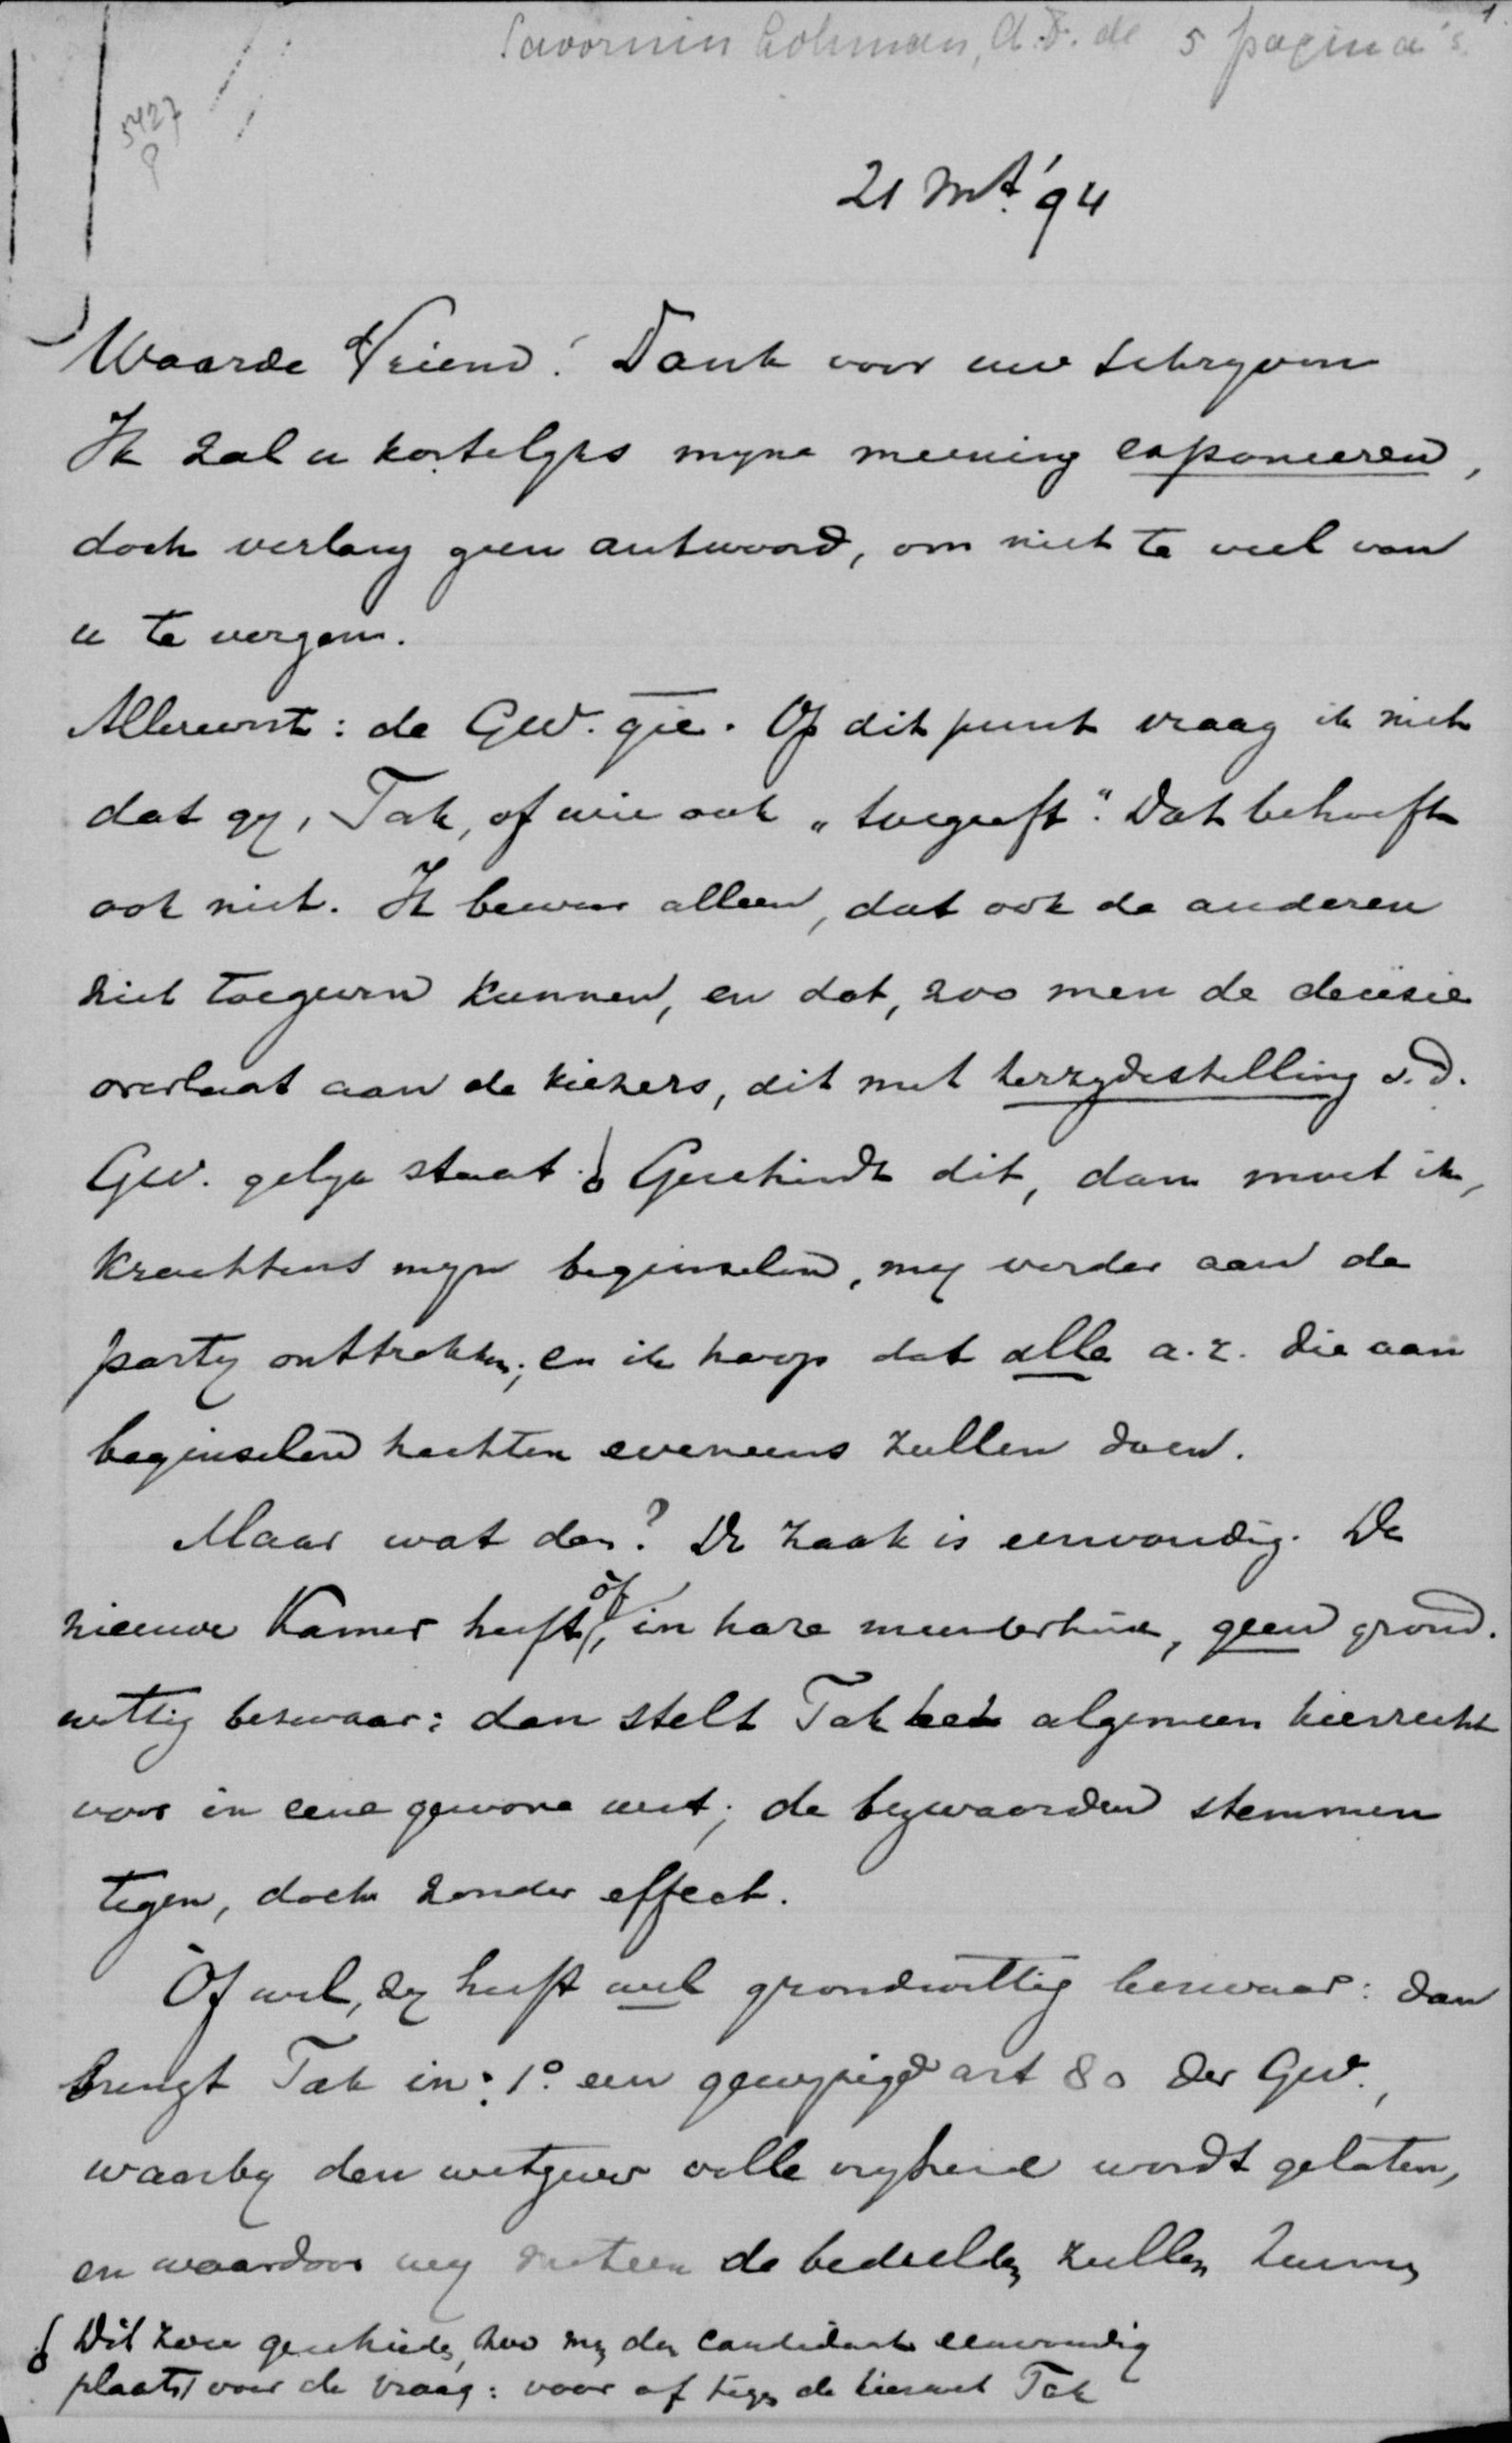 Savornin Lohman, A.F. de 5 pagina's. 1
5427
21 Mrt. '94
Waarde Vriend! Dank voor uw schryven
Ik zal u kortelyks myne meening exponeeren,
doch verlang geen antwoord, om niet te veel van
u te vergen.
Allereerst: de GW. qie. Op dit punt vraag ik niet
dat gy, Tak, of wie ook „toegeeft". Dat behoeft
ook niet. Ik beweer alleen, dat ook de anderen
niet toegeven kunnen, en dat, zoo men de decisie
overlaat aan de kiezers, dit met terzydestelling v.d.
GW. gelyk staat. Geschiedt dit, dan moet ik,
krachtens myn beginselen, my verder aan de
party onttrekken; en ik hoop dat alle a.r. die aan
beginselen hechten eveneens zullen doen.
Maar wat dan? De zaak is eenvoudig. De
nieuwe Kamer heeft òf, in hare meerderheid, geen grond-
wettig bezwaar: dan stelt Tak het algemeen kiesrecht
voor in eene gewone wet; de bezwaarden stemmen
tegen, doch zonder effect.
Òf wel, zy heeft wel grondwettig bezwaar: dan
brengt Tak in: 1° een gewyzigd art 80 der GW.,
waarby den wetgever volle vryheid wordt gelaten,
en waardoor wy meteen de bedeelden zullen kunnen
Dit zou geschieden, zoo men den candidaat eenvoudig
plaatst voor de vraag: voor of tegen de kieswet Tak